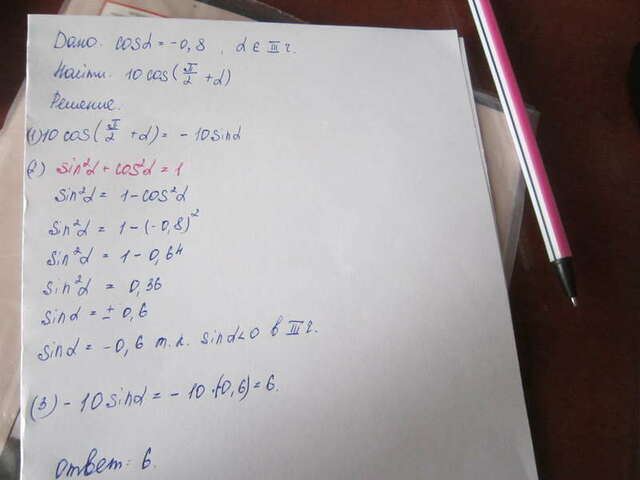 Дано. cosα = -0,8 , α ∈ III г.
Найти. 10 cos(π/2 + α)
Решение.
(1) 10 cos(π/2 + α) = - 10 sinα
(2) sin²α + cos²α = 1
sin²α = 1 - cos²α
sin²α = 1 - (-0,8)²
sin²α = 1 - 0,64
sin²α = 0,36
sinα = ± 0,6
sinα = -0,6 т.к. sinα<0 в III г.
(3) - 10 sinα = - 10 · (-0,6) = 6.
Ответ: 6.